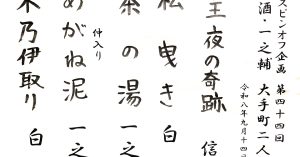 スピンオフ企画 第四十四回
酒・一之輔 大手町二人
令和八年九月十四日
王夜の奇跡 信
松曳き 白
茶の湯 一之
仲入り
めがね泥 一之
木乃伊取り 白